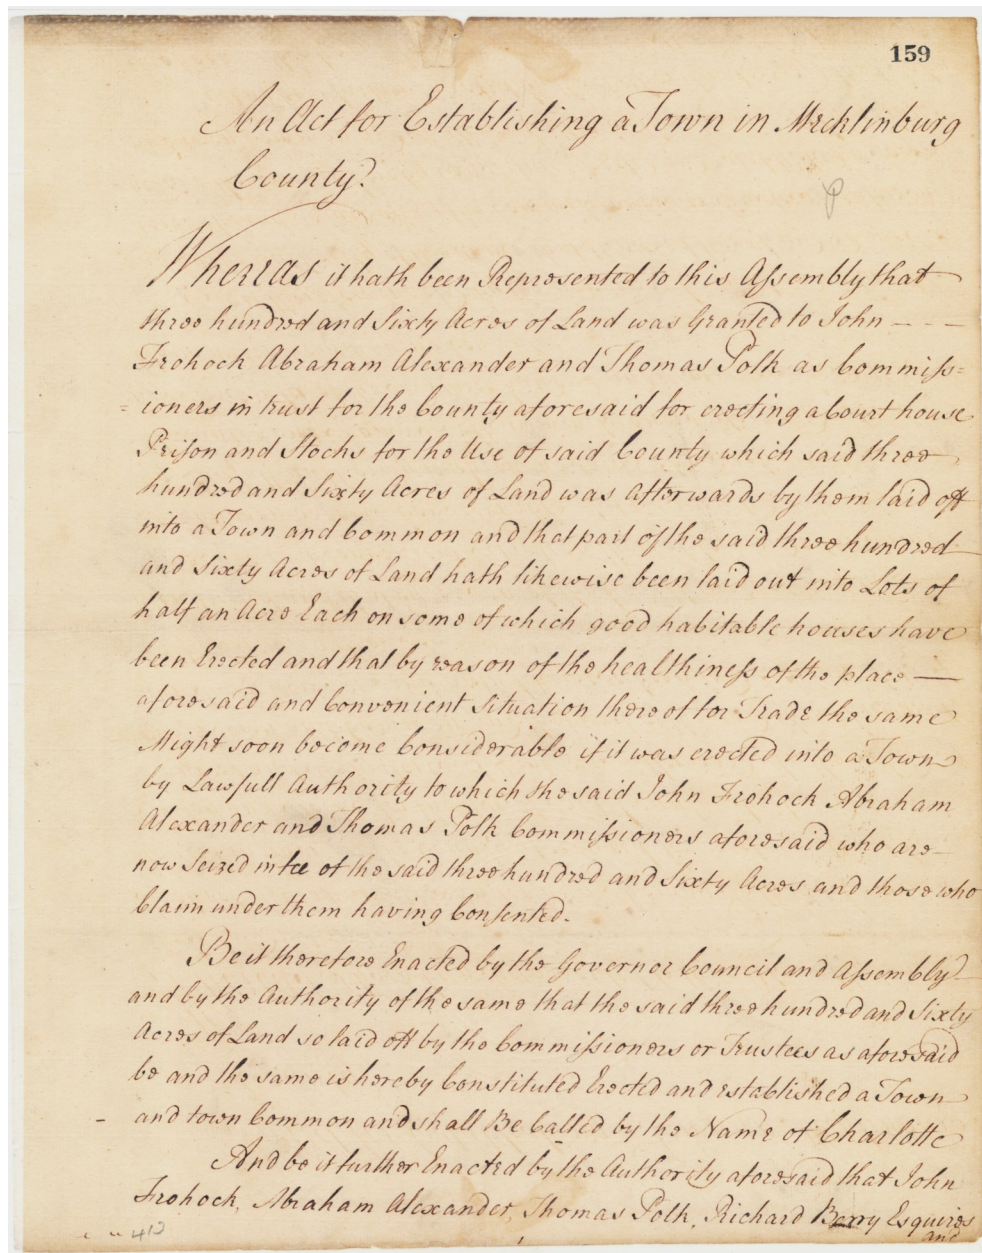 159
An Act for Establishing a Town in Mecklinburg
County.
Whereas it hath been Represented to this Assembly that
three hundred and Sixty Acres of Land was Granted to John - - -
Frohock Abraham Alexander and Thomas Polk as Commiss=
=ioners in trust for the County aforesaid for erecting a Court house
Prison and Stocks for the Use of said County which said three
hundred and Sixty Acres of Land was afterwards by them laid off
into a Town and Common and that part of the said three hundred
and Sixty Acres of Land hath likewise been laid out into Lots of
half an Acre Each on some of which good habitable houses have
been Erected and that by reason of the healthiness of the place —
aforesaid and Convenient Situation thereof for Trade the same
Might soon become Considerable if it was erected into a Town
by Lawfull Authority to which the said John Frohock Abraham
Alexander and Thomas Polk Commissioners aforesaid who are
now Seized in fee of the said three hundred and Sixty Acres and those who
Claim under them having Consented.
Be it therefore Enacted by the Governor Council and Assembly
and by the Authority of the same that the said three hundred and Sixty
Acres of Land so laid off by the Commissioners or Trustees as aforesaid
be and the same is hereby Constituted Erected and established a Town
and town Common and shall Be Called by the Name of Charlotte
And be it further Enacted by the Authority aforesaid that John
Frohock, Abraham Alexander, Thomas Polk, Richard Barry Esquires
and